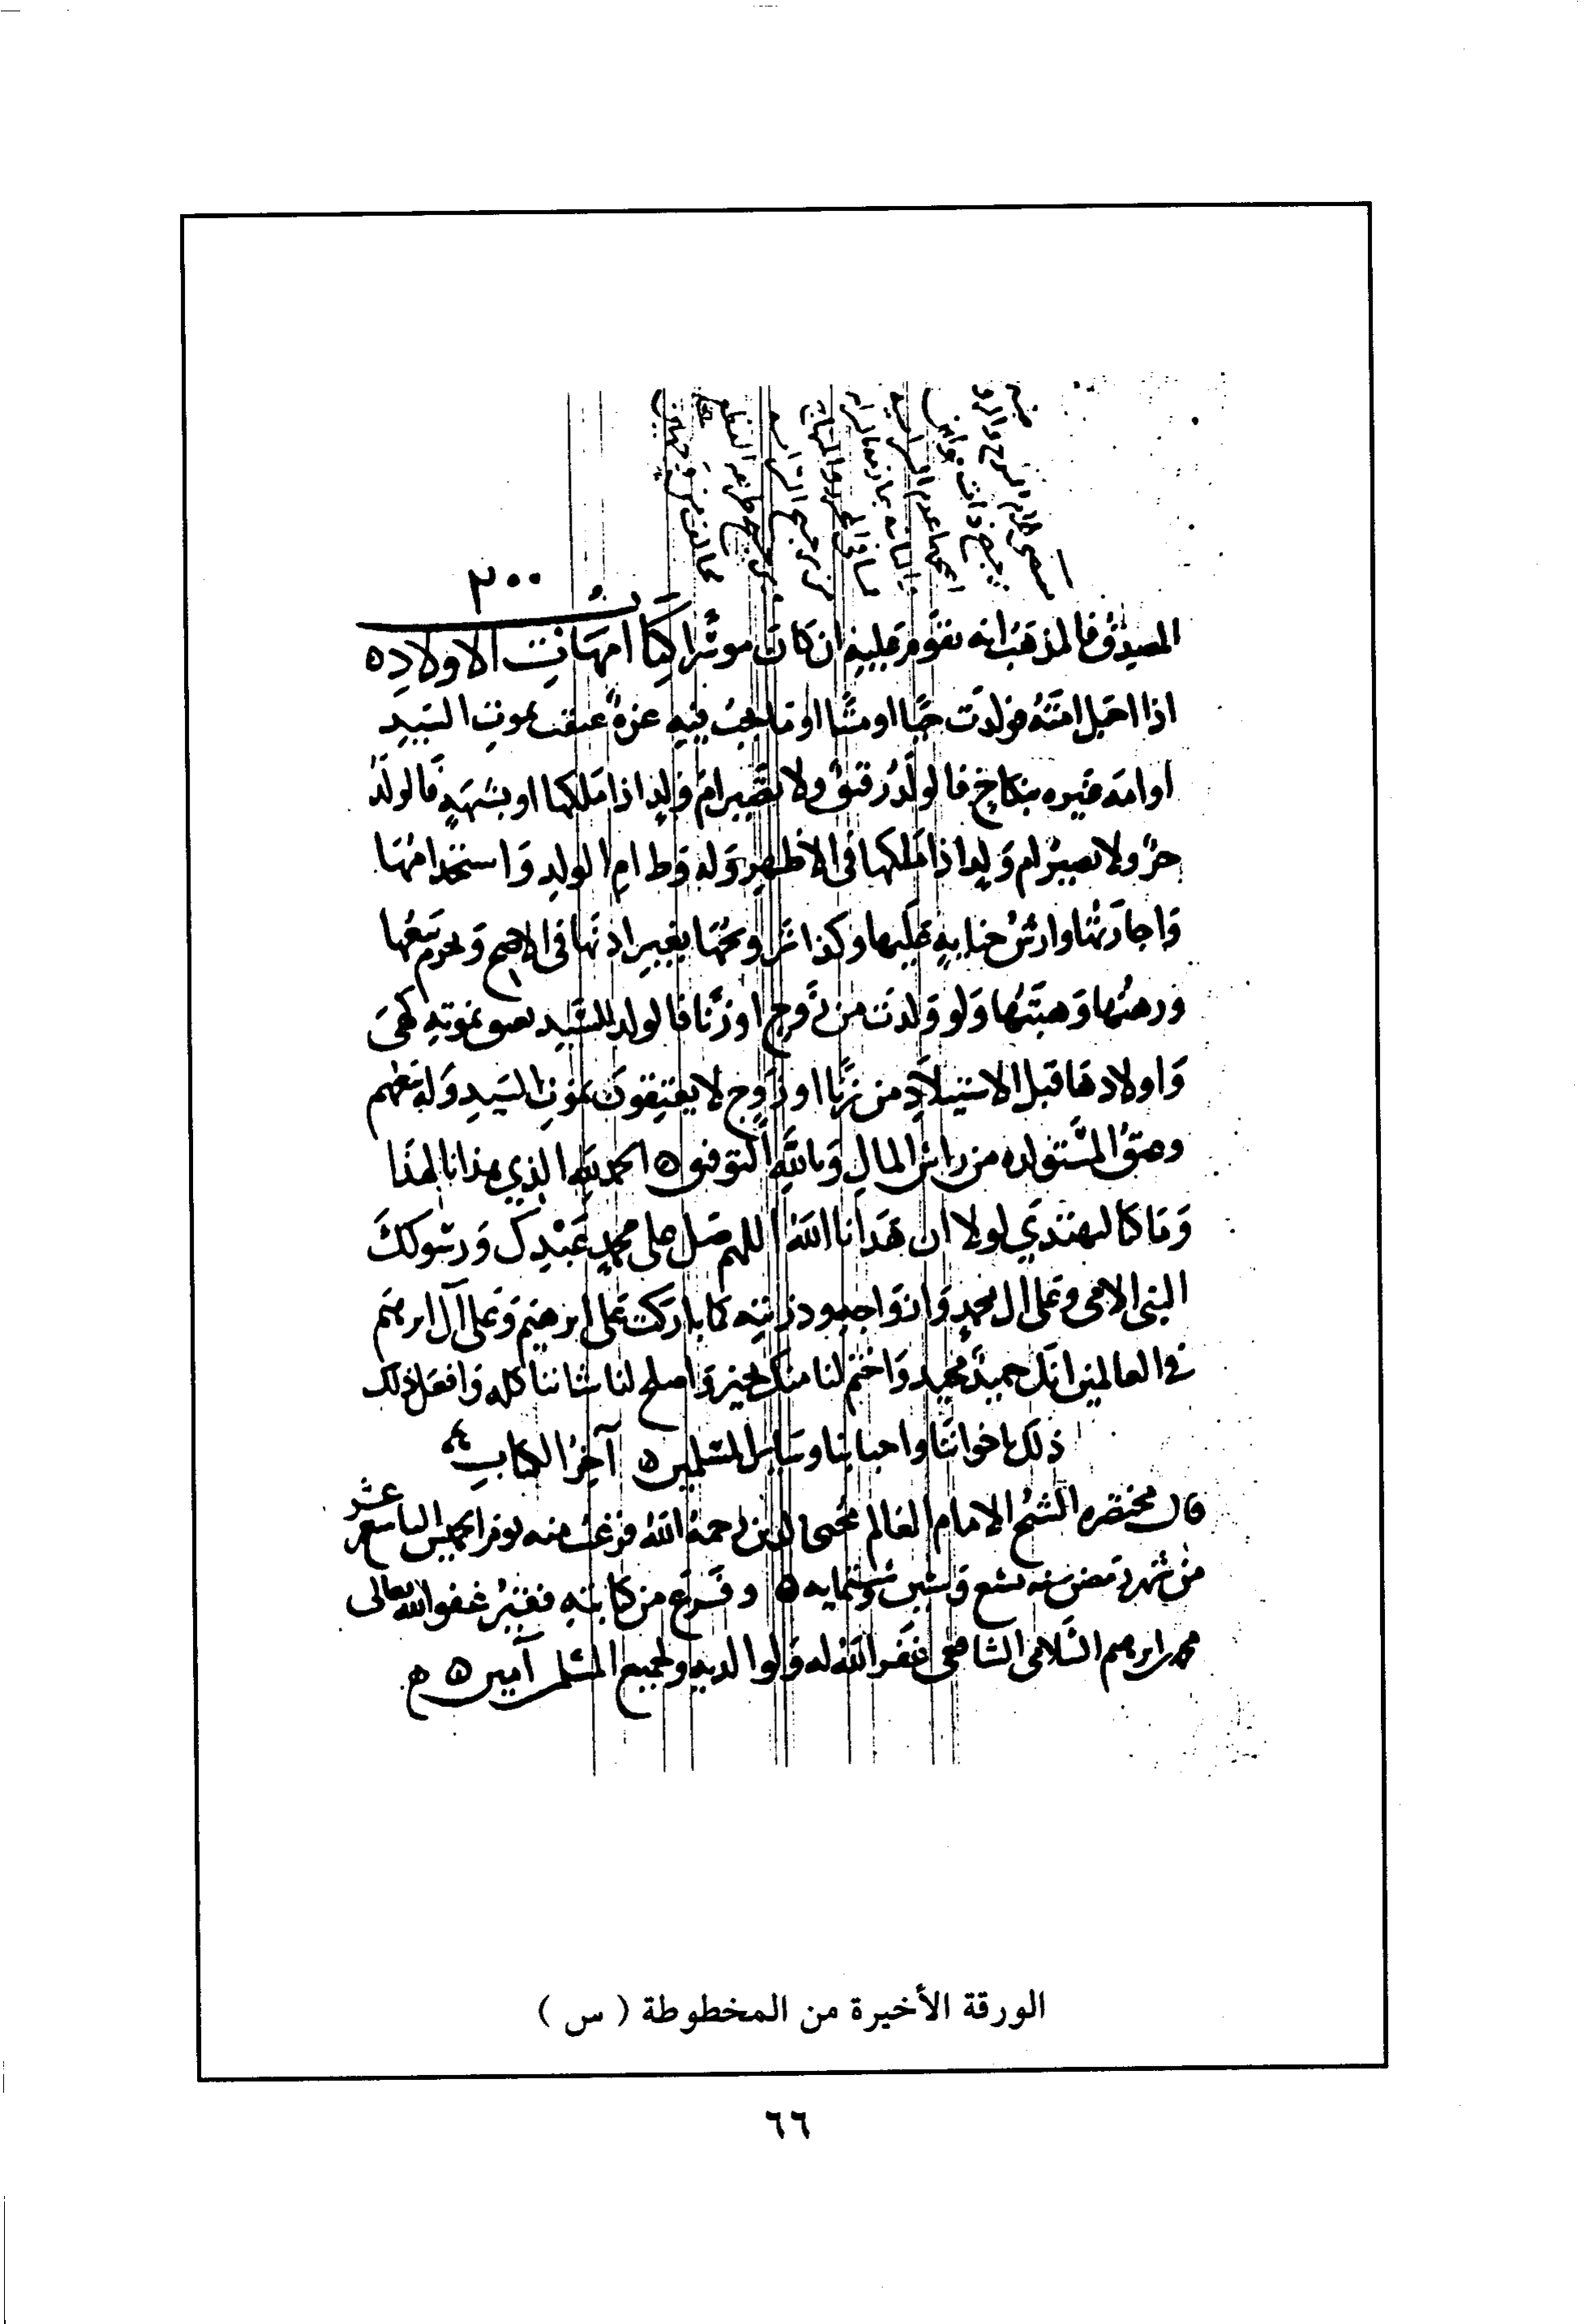 ٢٠٠
المصدق فالمذهب انه يقوم عليه ان كان موسرا كتاب امهات الاولاد ه
اذا احبل امته فولدت حيا او ميتا او ما يجب فيه غرة عتقت بموت السيد
او امة غيره بنكاح فالولد رقيق ولا تصير ام ولد اذا ملكها او بشبهة فالولد
حر ولا تصير ام ولد اذا ملكها في الاظهر وله وطء ام الولد واستخدامها
واجارتها وارش جناية عليها وكذا تزويجها بغير اذنها في الاصح ويحرم بيعها
ورهنها وهبتها ولو ولدت من زوج او زنا فالولد للسيد يعتق بموته كهي
واولادها قبل الاستيلاد من زنا او زوج لا يعتقون بموت السيد وله بيعهم
وعتق المستولدة من راس المال وبالله التوفيق ه الحمد لله الذي هدانا لهذا
وما كنا لنهتدي لولا ان هدانا الله اللهم صل على محمد عبدك ورسولك
النبي الامي وعلى ال محمد وازواجه وذريته كما باركت على ابرهيم وعلى آل ابرهيم
في العالمين انك حميد مجيد واختم لنا منك بخير واصلح لنا شاننا كله وافعل ذلك
ذلك باخواننا واحبابنا وساير المسلمين ه آخر الكتاب
قال مختصره الشيخ الامام العالم محيي الدين رحمه الله فرغت منه يوم الخميس التاسع عشر
من شهر رمضان سنه تسع وستين وستمايه ه وفرغ من كتابته فقير عفو الله تعالى
محمد ابرهيم السلامي الشافعي غفر الله له ولوالديه ولجميع المسلمين آمين ه
الورقة الأخيرة من المخطوطة ( س )
٦٦